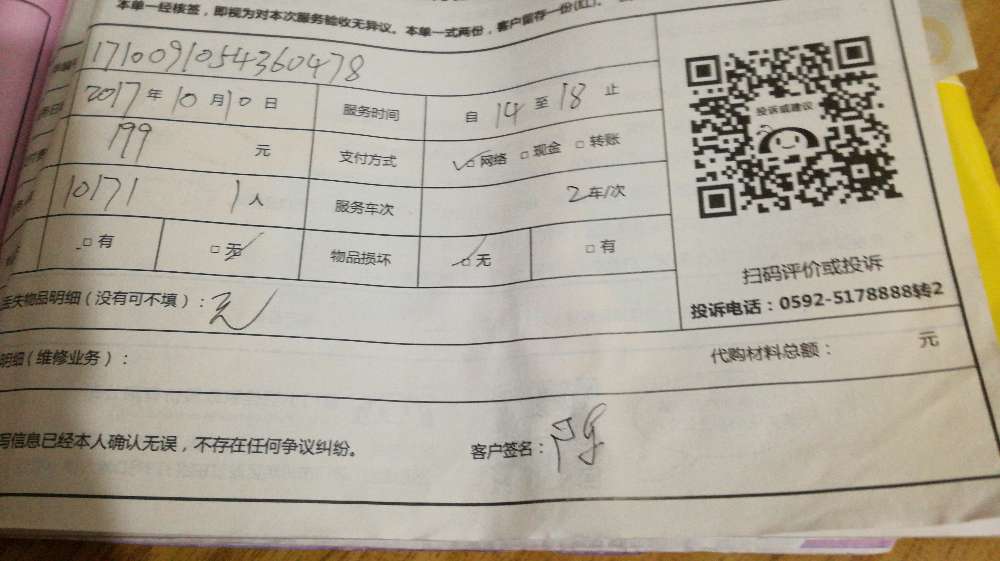 本单一经核签，即视为对本次服务验收无异议。本单一式两份，客户留存一份(红)。
1710091054360478
2017年10月10日 服务时间 自 14 至 18 止
199 元 支付方式 ☑网络 □现金 □转账
10171 1人 服务车次 2车/次
□有 ☑无 物品损坏 ☑无 □有
丢失物品明细（没有可不填）：无
明细（维修业务）： 代购材料总额： 元
写信息已经本人确认无误，不存在任何争议纠纷。 客户签名：
投诉或建议
扫码评价或投诉
投诉电话：0592-5178888转2